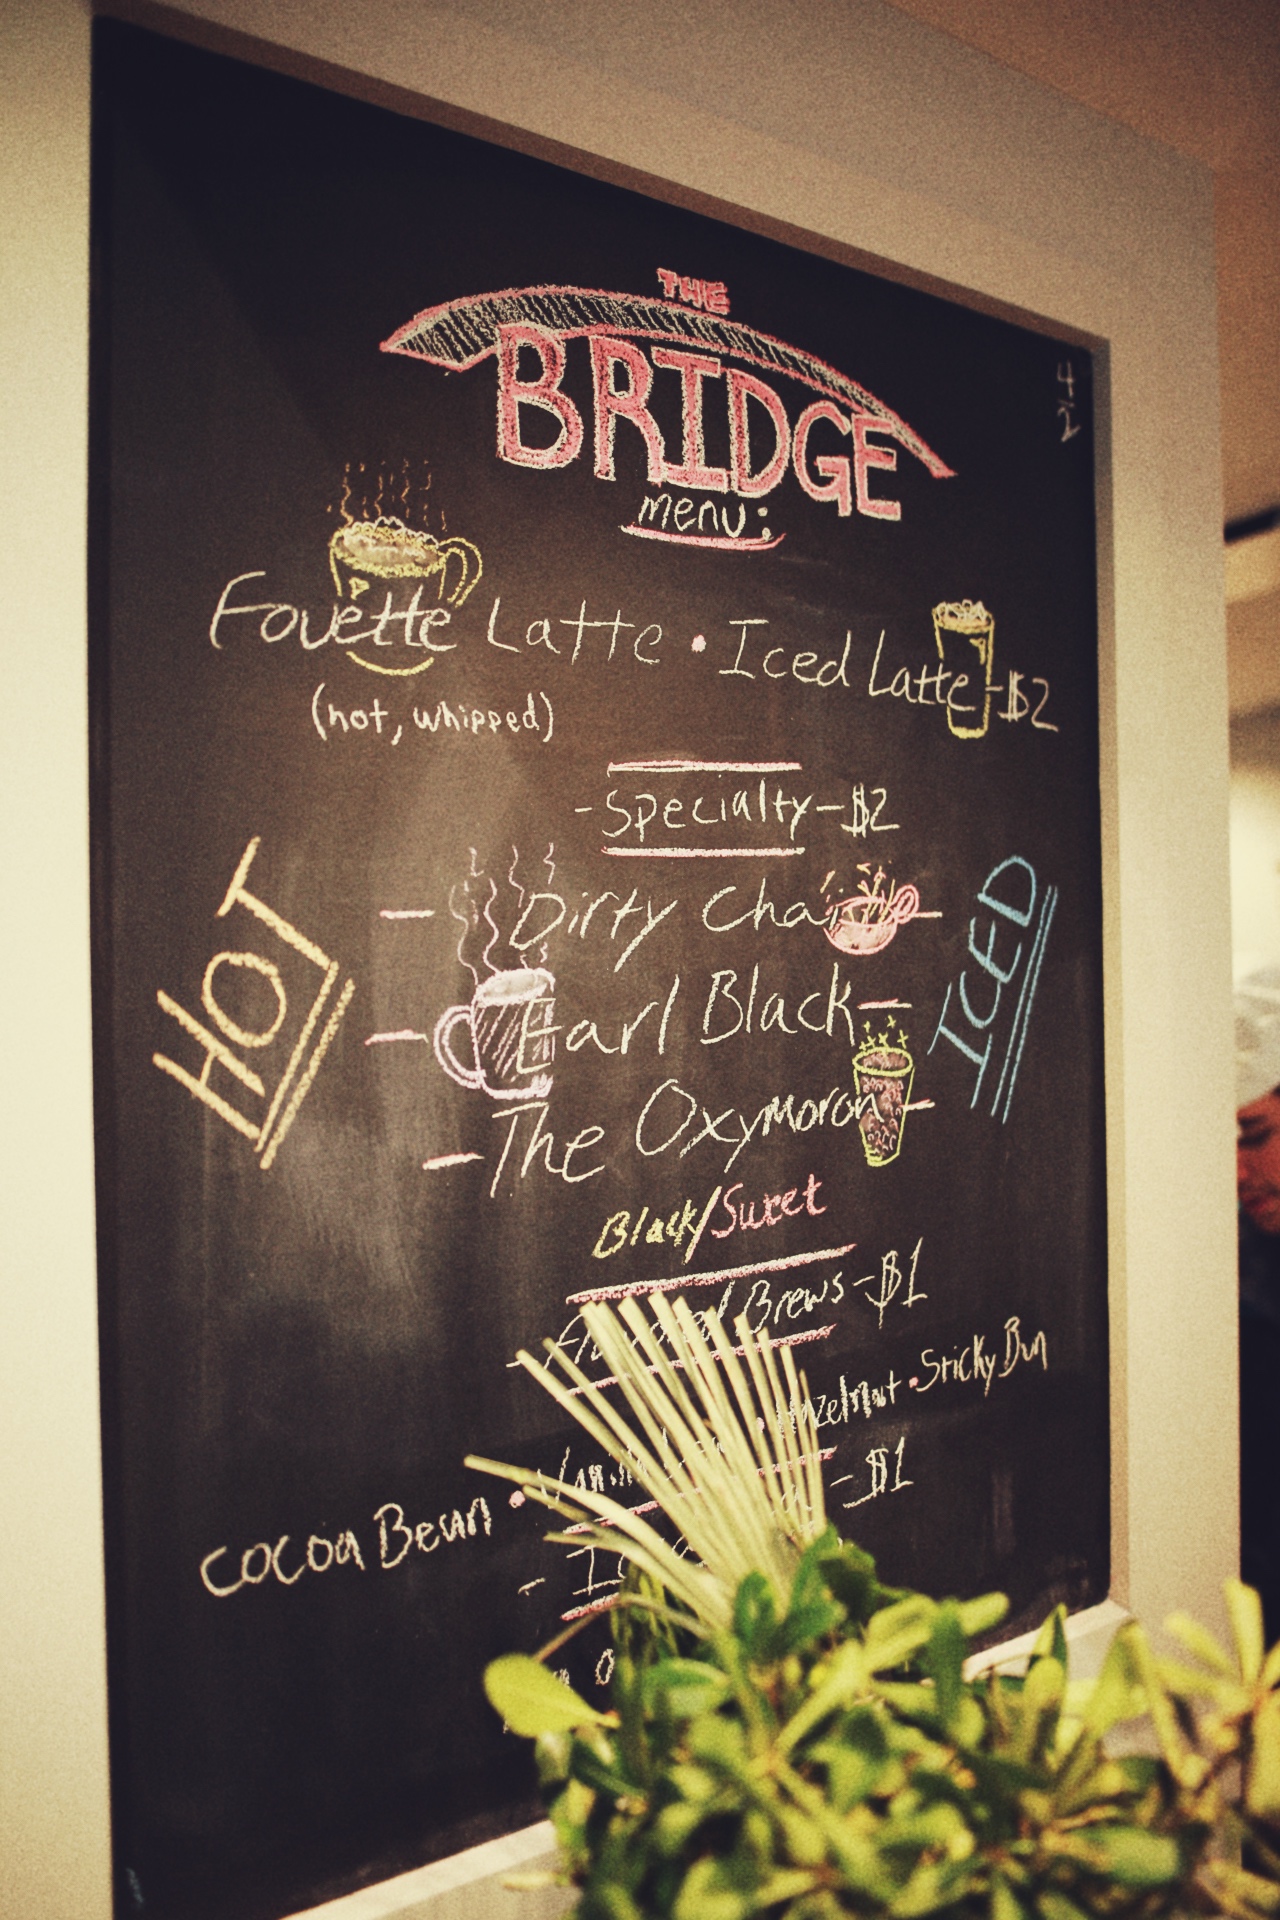 THE
BRIDGE
menu:
4/2
Fouette Latte • Iced Latte - $2
(hot, whipped)
- Specialty - $2
HOT
ICED
- Dirty Chai -
- Earl Black -
- The Oxymoron -
Black/Sweet
- Flavored Brews - $1
Cocoa Bean • Vanilla • Hazelnut • Sticky Bun
- $1